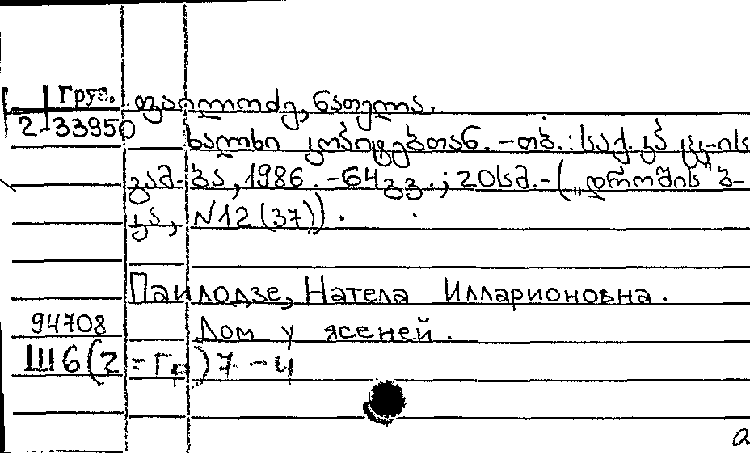 Груз. ფაილოძე, ნათელა.
2-33950 ხალხი კოპიტებთან. -თბ.: საქ. კპ ცკ-ის
გამ-ბა, 1986. -64გვ.; 20სმ.-(„დროშის“ ბ-
კა, N12 (37)).
Паилодзе, Натела Илларионовна.
94708 Дом у ясеней.
Ш6(2=Гр)7-4